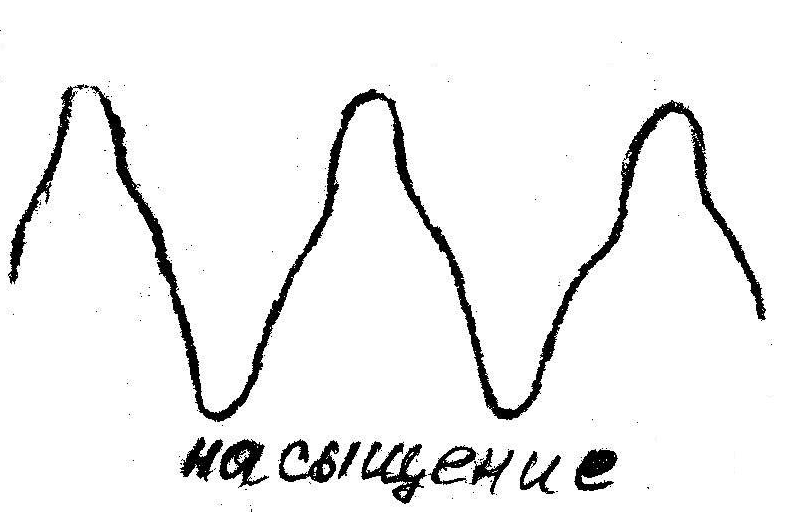 насыщение